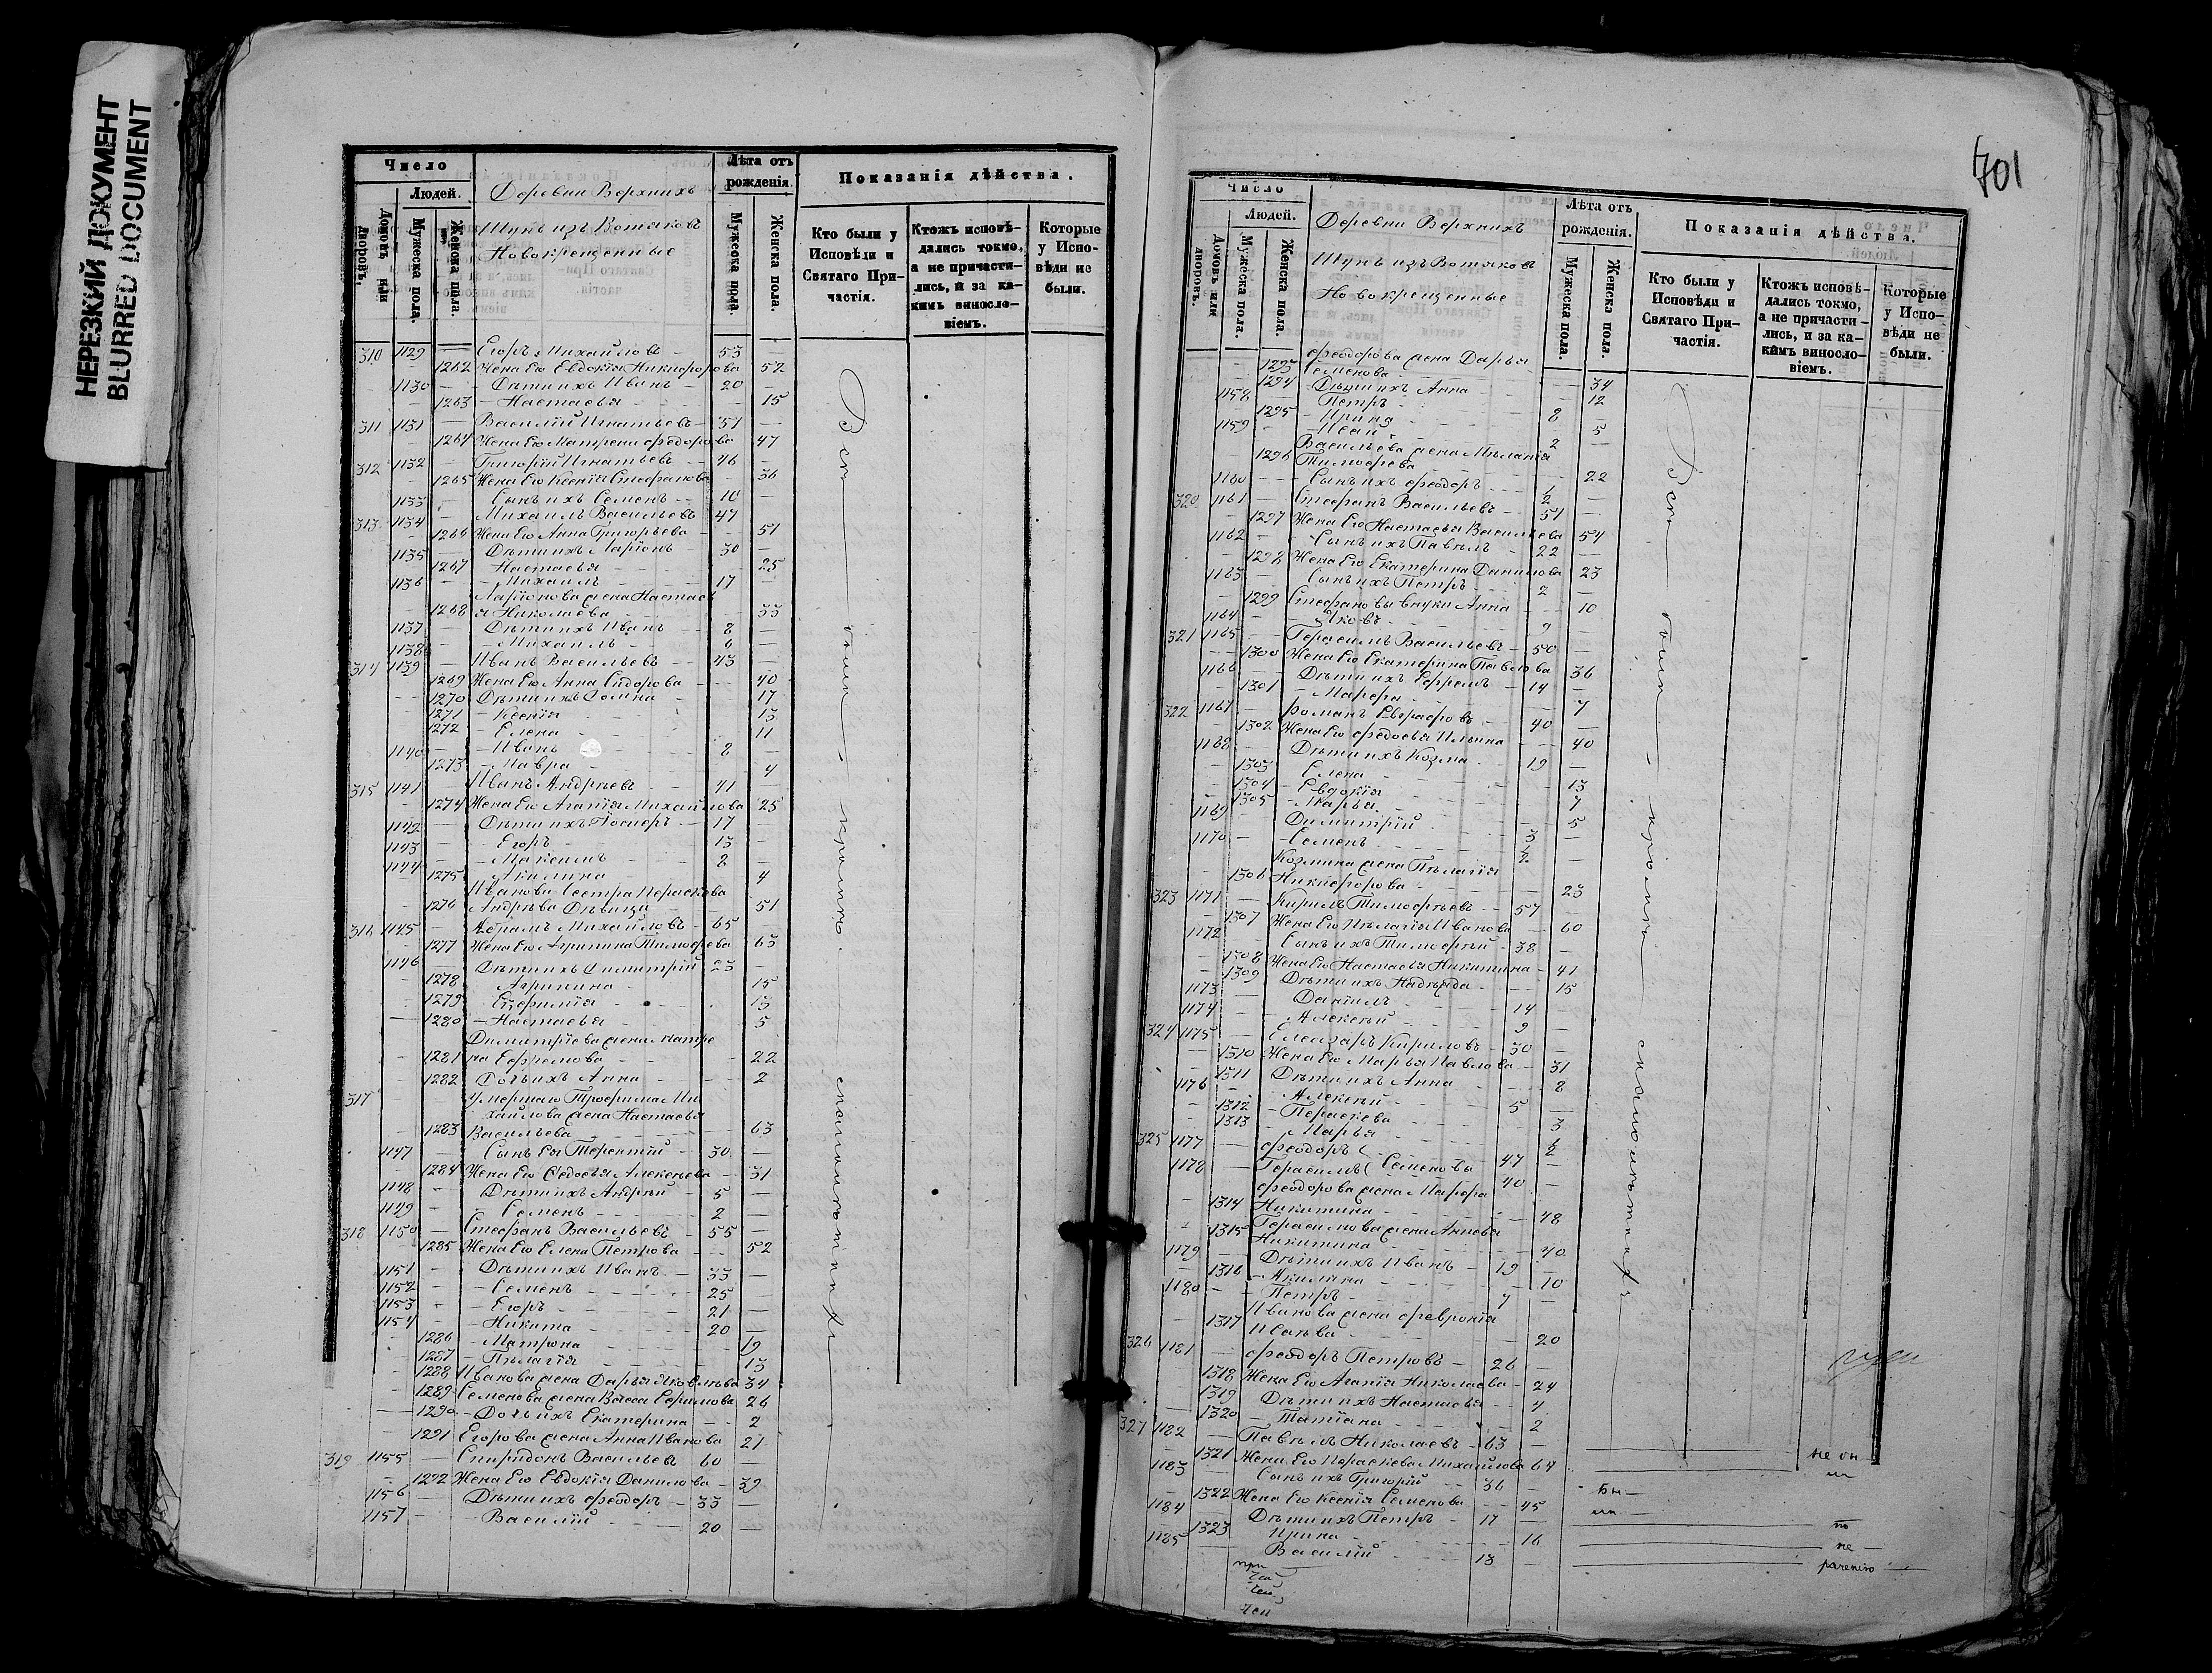 НЕРЕЗКИЙ ДОКУМЕНТ
BLURRED DOCUMENT
Число
Людей.
Домовъ или дворовъ.
Мужеска пола.
Женска пола.
Деревни Верхнихъ
Шунъ изъ Вотяковъ
Новокрещенные
Лѣта отъ рожденія.
Мужеска пола.
Женска пола.
Показанія дѣйства.
Кто были у Исповѣди и Святаго Причастія.
Ктожъ исповѣдались токмо, а не причастились, и за какимъ винословіемъ.
Которые у Исповѣди не были.
310 1129 — Егоръ Михайловъ — 53
1262 Жена Его Евдокія Никифорова 52
1130 — Дѣти ихъ Иванъ — 20 —
1263 — Настасья 15
311 1131 — Василій Игнатьевъ — 51 —
1264 Жена Его Матрена Ѳедорова 47
312 1132 — Григорій Игнатьевъ — 46 —
1265 Жена Его Ксенія Стефанова 36
1133 — Сынъ ихъ Семенъ — 10 —
313 1134 — Михаилъ Васильевъ 47
1266 Жена Его Анна Григорьева — 51
1135 — Дѣти ихъ Ларіонъ — 30 —
1267 Настасья 25
1136 — Михаилъ — 17 —
Ларіонова жена Настась
1268 я Николаева 33
1137 — Дѣти ихъ Иванъ — 8 —
1138 — Михаилъ — 6 —
314 1139 — Иванъ Васильевъ — 43 —
1269 Жена Его Анна Сидорова — 40
1270 Дѣти ихъ Домна — 17
1271 — Ксенія — 13
1272 — Елена — 11
1140 — Иванъ — 8 —
1273 — Мавра — 4
315 1141 Иванъ Андреевъ — 41 —
1274 Жена Его Агапія Михайлова 25
1142 — Дѣти ихъ — 17 —
1143 — Егоръ — 13 —
1144 — Максимъ — 8 —
1275 Акилина — 4
Иванова Сестра Параскева
1276 Андрѣва Дѣвица 51
316 1145 — Абрамъ Михайловъ — 65
1277 Жена Его Агрипина Тимофеева 63
1146 — Дѣти ихъ Димитрій 23 —
1278 Агрипина — 15
1279 — Ефимія — 13
1280 — Настасья — 5
Димитріева жена Матре
1281 на Ефремова — 22
1282 Дочь ихъ Анна — 2
317 Умершаго Трофима Ми
хайлова жена Настасья
1283 Васильева — 63
1147 — Сынъ Ея Терентій — 30 —
1284 Жена Его Ѳедосья Алексѣева — 31
1148 — Дѣти ихъ Андрей — 5 —
1149 — Семенъ — 2 —
318 1150 — Стефанъ Васильевъ — 55 —
1285 Жена Его Елена Петрова — 52
1151 — Дѣти ихъ Иванъ — 33 —
1152 — Семенъ — 25 —
1153 — Егоръ — 21 —
1154 — Никита — 20 —
1286 — Матрона — 19
1287 — Пелагія — 13
1288 Иванова жена Дарья Яковлева 34
1289 Семенова жена Васса Ефимова 26
1290 — Дочь ихъ Екатерина — 2
1291 Егорова жена Анна Иванова 21
319 1155 — Спиридонъ Васильевъ 60 —
1292 Жена Его Евдокія Данилова — 39
1156 — Дѣти ихъ Ѳеодоръ — 33 —
1157 — Василій — 20 —
Всѣ были кромѣ
701
Число
Людей.
Домовъ или дворовъ.
Мужеска пола.
Женска пола.
Деревни Верхнихъ
Шунъ изъ Вотяковъ
Новокрещенные
Лѣта отъ рожденія.
Мужеска пола.
Женска пола.
Показанія дѣйства.
Кто были у Исповѣди и Святаго Причастія.
Ктожъ исповѣдались токмо, а не причастились, и за какимъ винословіемъ.
Которые у Исповѣди не были.
Ѳеодорова жена Дарья
1293 Семенова — 34
1294 — Дѣти ихъ Анна — 12
1158 — Петръ — 8
1295 — Ирина — 5
1159 — Иванъ — 2
Васильева жена Меланія
1296 Тимофеева — 22
1160 — Сынъ ихъ Ѳеодоръ — 1/2 —
320 1161 — Стефанъ Васильевъ — 51 —
1297 Жена Его Настасья Васильева 54
1162 — Сынъ ихъ Павелъ — 22 —
1298 Жена Его Екатерина Данилова 23
1163 — Сынъ ихъ Петръ — 2 —
1299 Стефановы внуки Анна — 10
1164 — Яковъ — 9 —
321 1165 — Герасимъ Васильевъ — 50 —
1300 Жена Его Екатерина Павлова 36
1166 — Дѣти ихъ Ефремъ — 14 —
1301 — Марфа — 7
322 1167 — Романъ Евграфовъ — 40 —
1302 Жена Его Ѳедосья Ильина — 40
1168 — Дѣти ихъ Козма — 19 —
1303 Елена — 13
1304 — Евдокія — 7
1305 — Марья — 5
1169 — Димитрій — 3 —
1170 — Семенъ — 1/2 —
Козмина жена Пелагія
1306 Никифорова — 23
323 1171 — Кирилъ Тимофѣевъ — 57
1307 Жена Его Пелагія Иванова — 60
1172 Сынъ ихъ Тимофѣй — 38 —
1308 Жена Его Настасья Никитина — 41
1309 Дѣти ихъ Надежда — 15
1173 — Даніилъ — 14 —
1174 — Алексѣй — 9 —
324 1175 — Елеазаръ Кириловъ — 30 —
1310 Жена Его Марья Павлова — 31
1311 Дѣти ихъ Анна — 8
1176 — Алексѣй — 5 —
1312 — Параскева — 3
1313 — Марья — 1/2
325 1177 — Ѳеодоръ ( 47 —
1178 — Герасимъ ( Семеновы 40 —
Ѳеодорова жена Марфа
1314 Никитина — 48
Герасимова жена Анисья
1315 Никитина — 40
1179 — Дѣти ихъ Иванъ — 19 —
1316 — Акилина — 10
1180 — Петръ — 7 —
Иванова жена Ѳевронія
1317 Исаева — 20
326 1181 — Ѳеодоръ Петровъ — 26 —
1318 Жена Его Агапія Николаева — 24
1319 Дѣти ихъ Настасья — 4
1320 — Татіана — 2
327 1182 — Павелъ Николаевъ — 63 —
1321 Жена Его Параскева Михайлова 64
1183 — Сынъ ихъ Григорій — 36 —
1322 Жена Его Ксенія Семенова — 45
1184 — Дѣти ихъ Петръ — 17 —
1323 Ирина — 16
1185 — Василій — 13 —
Всѣ были кромѣ
не бы
ли
Бы —
ли —
по
не —
раченію